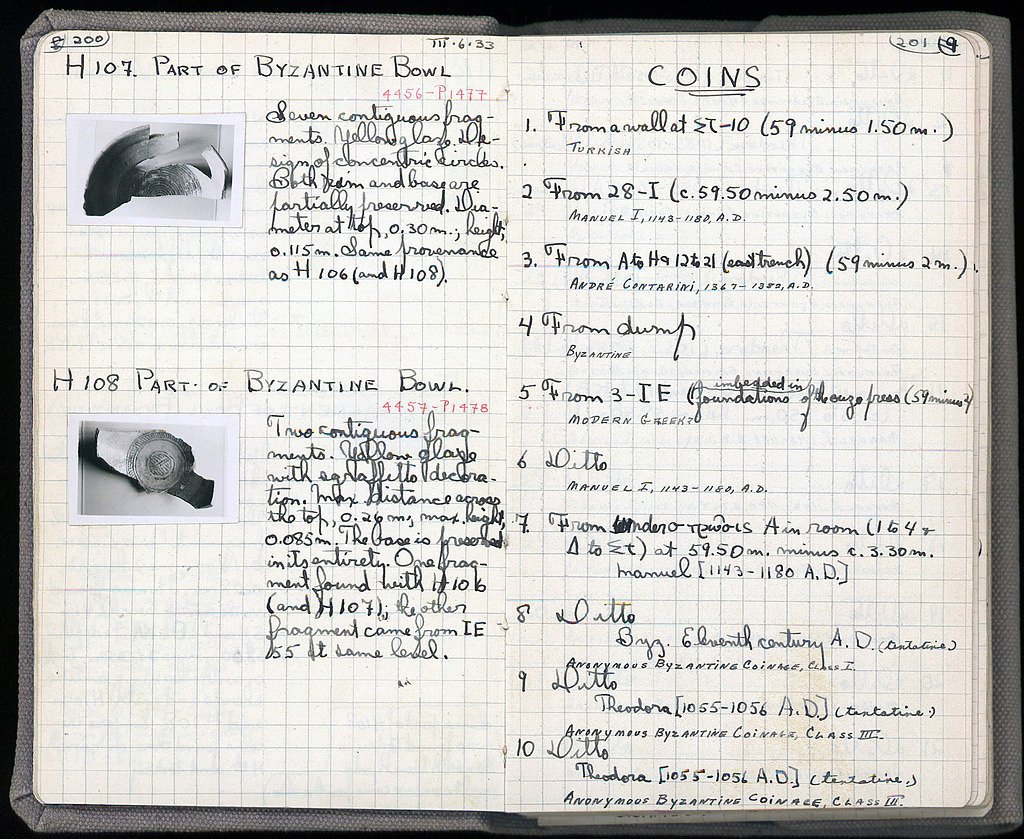 8 200
III·6·33
H 107. PART OF BYZANTINE BOWL
4456-P1477
Seven contiguous frag-
ments. Yellow glaze. De-
sign of concentric circles.
Both rim and base are
partially preserved. Dia-
meter at top, 0.30 m.; height,
0.115 m. Same provenance
as H 106 (and H 108).
H 108 PART OF BYZANTINE BOWL.
4457-P1478
Two contiguous frag-
ments. Yellow glaze
with sgraffitto decora-
tion. Max. distance across
the top, 0.26 m, max. height,
0.085 m. The base is preserved
in its entirety. One frag-
ment found with H 106
(and H 107); the other
fragment came from IE
55 at same level.
201 9
COINS
1. From a wall at ΣΤ-10 (59 minus 1.50 m.)
TURKISH
2 From 28-I (c. 59.50 minus 2.50 m.)
MANUEL I, 1143-1180, A.D.
3. From A to H 12 to 21 (east trench) (59 minus 2 m.)
ANDRÉ CONTARINI, 1367-1382, A.D.
4 From dump
BYZANTINE
5 From 3-IE (imbedded in foundations of press (59 minus
MODERN GREEK?
6 Ditto
MANUEL I, 1143-1180, A.D.
7. From under στρῶσις A in room (1 to 4 &
Δ to ΣΤ) at 59.50 m. minus c. 3.30 m.
Manuel [1143-1180 A.D.]
8 Ditto
Byz. Eleventh century A.D. (tentative.)
ANONYMOUS BYZANTINE COINAGE, CLASS I.
9 Ditto
Theodora [1055-1056 A.D.] (tentative.)
ANONYMOUS BYZANTINE COINAGE, CLASS III.
10 Ditto
Theodora [1055-1056 A.D.] (tentative.)
ANONYMOUS BYZANTINE COINAGE, CLASS III.